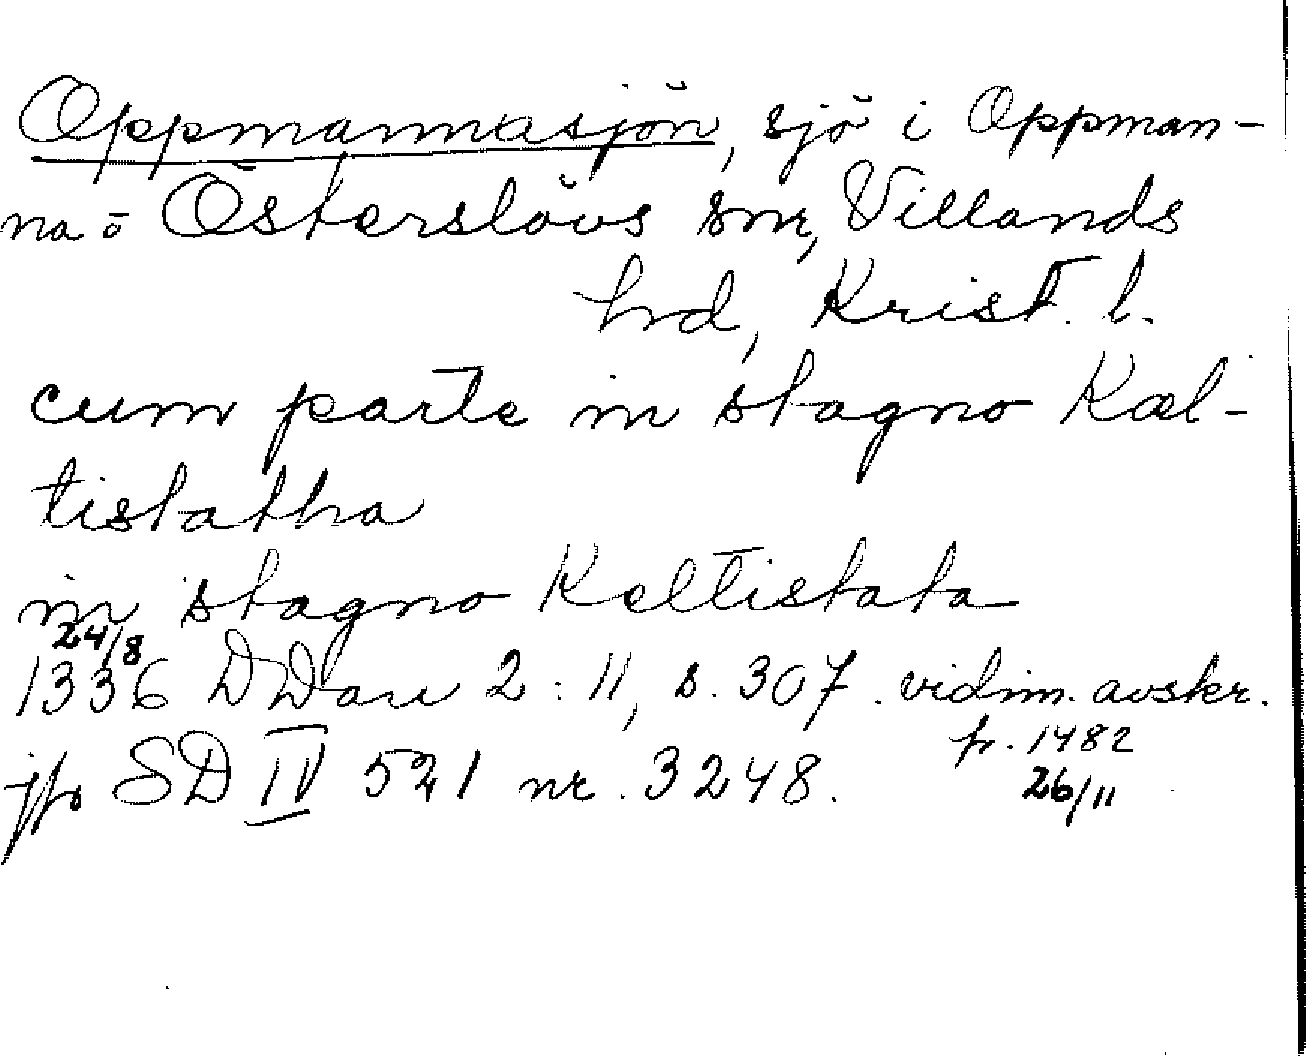 Oppmannasjön, sjö i Oppman-
na o Österslövs snr, Villands
hd, Krist. l.
cum parte in stagno Kæl-
tistatha
in stagno Keltistata
24/8
1336 DDan 2:11, s. 307. vidim. avskr.
fr. 1482
26/11
jfr SD IV 521 nr. 3248.